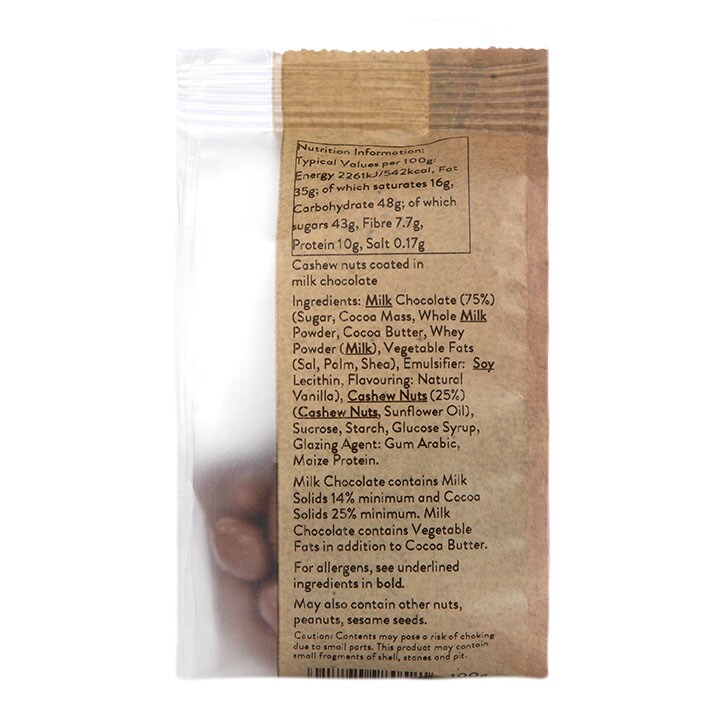 Nutrition Information:
Typical Values per 100g:
Energy 2261kJ/542kcal, Fat
35g; of which saturates 16g,
Carbohydrate 48g; of which
sugars 43g, Fibre 7.7g,
Protein 10g, Salt 0.17g
Cashew nuts coated in
milk chocolate
Ingredients: Milk Chocolate (75%)
(Sugar, Cocoa Mass, Whole Milk
Powder, Cocoa Butter, Whey
Powder (Milk), Vegetable Fats
(Sal, Palm, Shea), Emulsifier: Soy
Lecithin, Flavouring: Natural
Vanilla), Cashew Nuts (25%)
(Cashew Nuts, Sunflower Oil),
Sucrose, Starch, Glucose Syrup,
Glazing Agent: Gum Arabic,
Maize Protein.
Milk Chocolate contains Milk
Solids 14% minimum and Cocoa
Solids 25% minimum. Milk
Chocolate contains Vegetable
Fats in addition to Cocoa Butter.
For allergens, see underlined
ingredients in bold.
May also contain other nuts,
peanuts, sesame seeds.
Caution: Contents may pose a risk of choking
due to small parts. This product may contain
small fragments of shell, stones and pit.